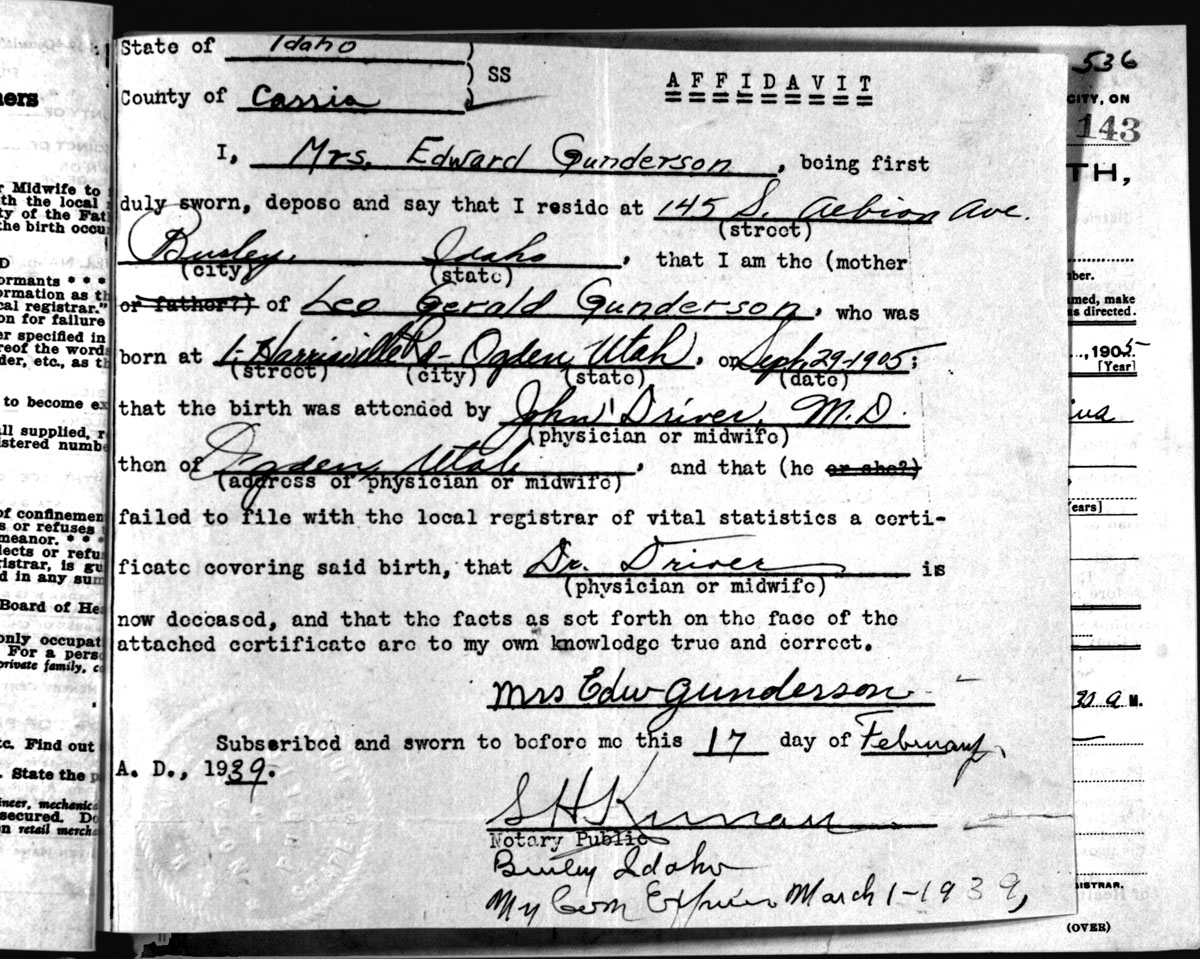 State of Idaho )
) SS
County of Cassia )
AFFIDAVIT
I, Mrs. Edward Gunderson, being first
duly sworn, depose and say that I reside at 145 S. Albion Ave.
(street)
Burley, Idaho, that I am the (mother
(city) (state)
or father?) of Leo Gerald Gunderson, who was
born at 1- Harrisville Rd- Ogden, Utah, on Sept. 29-1905;
(street) (city) (state) (date)
that the birth was attended by John Driver, M.D.
(physician or midwife)
then of Ogden, Utah, and that (he or she?)
(address of physician or midwife)
failed to file with the local registrar of vital statistics a certi-
ficate covering said birth, that Dr. Driver is
(physician or midwife)
now deceased, and that the facts as set forth on the face of the
attached certificate are to my own knowledge true and correct.
Mrs Edw Gunderson
Subscribed and sworn to before me this 17 day of February,
A. D., 1939.
Notary Public
Burley Idaho
My Com Expires March 1-1939,
ners
r Midwife to
th the local
ty of the Fat
the birth occu
D
ormants * * *
ormation as th
cal registrar."
on for failure
er specified in
reof the words
der, etc., as th
to become ex
ll supplied, r
istered numb
of confinemen
s or refuses
meanor. * * *
lects or refu
istrar, is gu
d in any sum
Board of He
only occupat
For a perso
private family, c
tc. Find out
. State the p
ineer, mechanic
secured. Do
n retail mercha
536
CITY, ON
143
TH,
ber.
med, make
as directed.
, 1905
[Year]
ears]
30 a M.
ISTRAR.
(OVER)